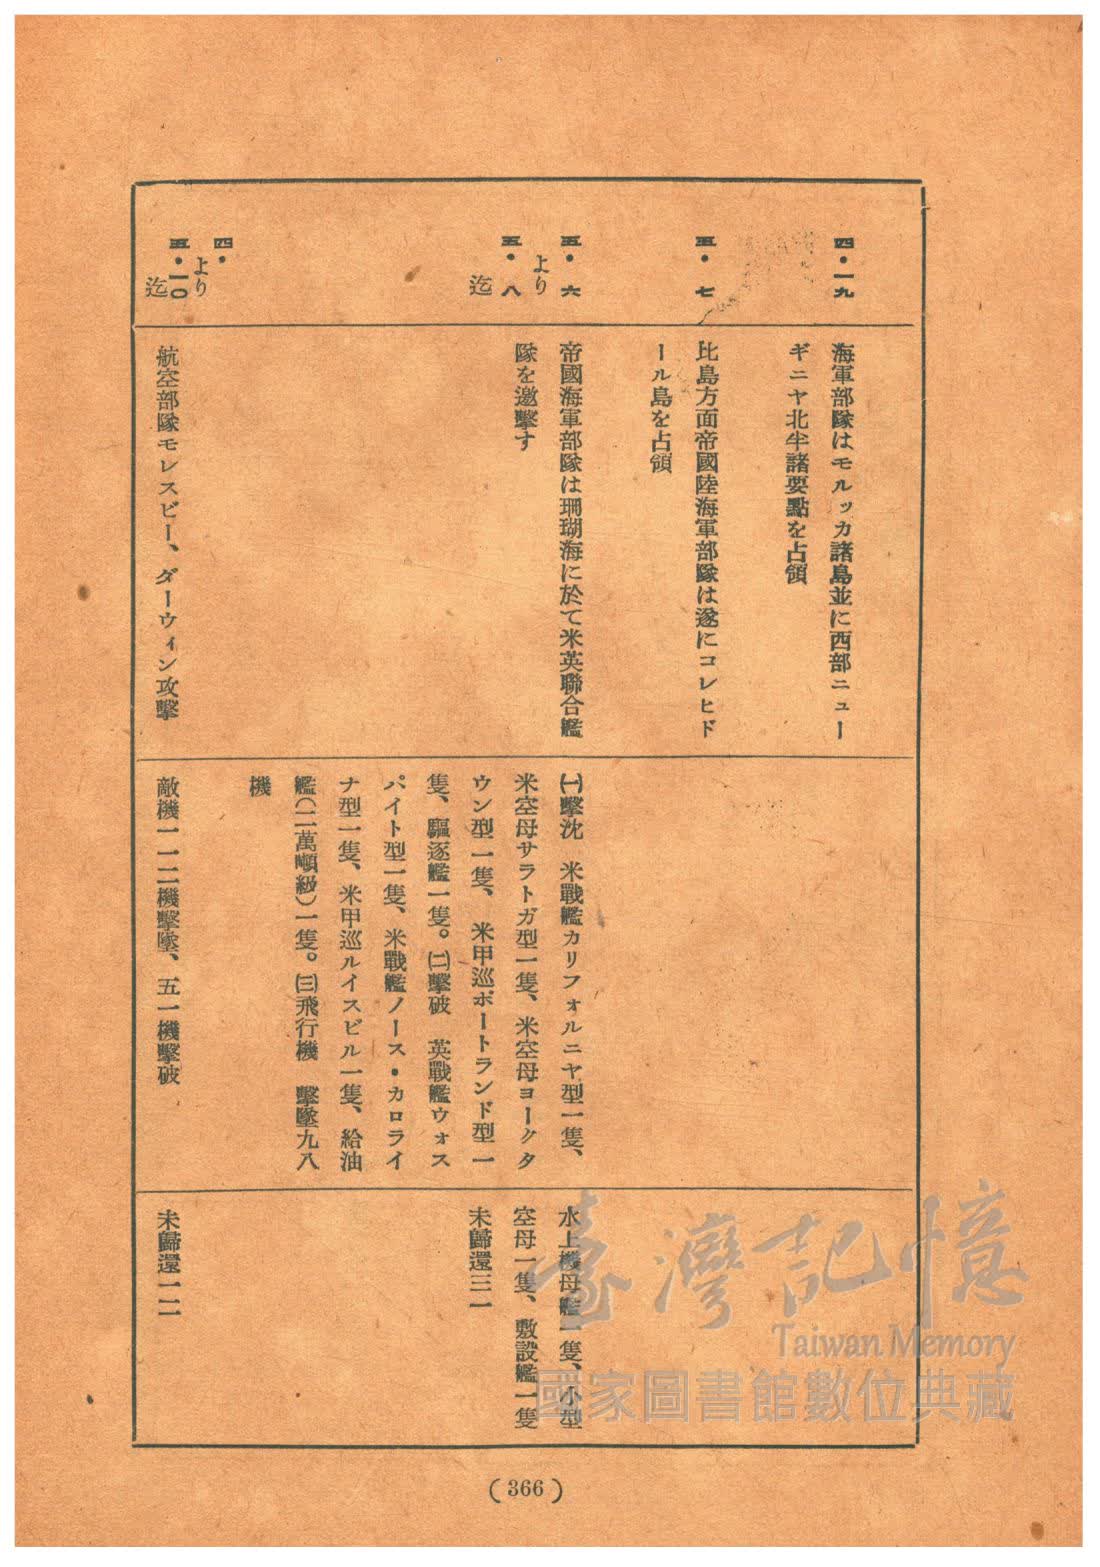 四・一九
海軍部隊はモルッカ諸島並に西部ニュー
ギニヤ北半諸要點を占領
五・七
比島方面帝國陸海軍部隊は遂にコレヒド
ール島を占領
五・六
より
五・八
迄
帝國海軍部隊は珊瑚海に於て米英聯合艦
隊を邀擊す
㈠擊沈　米戰艦カリフォルニヤ型一隻、
米空母サラトガ型一隻、米空母ヨークタ
ウン型一隻、米甲巡ポートランド型一
隻、驅逐艦一隻。㈡擊破　英戰艦ウォス
パイト型一隻、米戰艦ノース・カロライ
ナ型一隻、米甲巡ルイスビル一隻、給油
艦(二萬噸級)一隻。㈢飛行機　擊墜九八
機
水上機母艦一隻、小型
空母一隻、敷設艦一隻
未歸還三一
四・
より
五・一〇
迄
航空部隊モレスビー、ダーウィン攻擊
敵機一一二機擊墜、五一機擊破
未歸還一二
(366)
臺灣記憶
Taiwan Memory
國家圖書館數位典藏